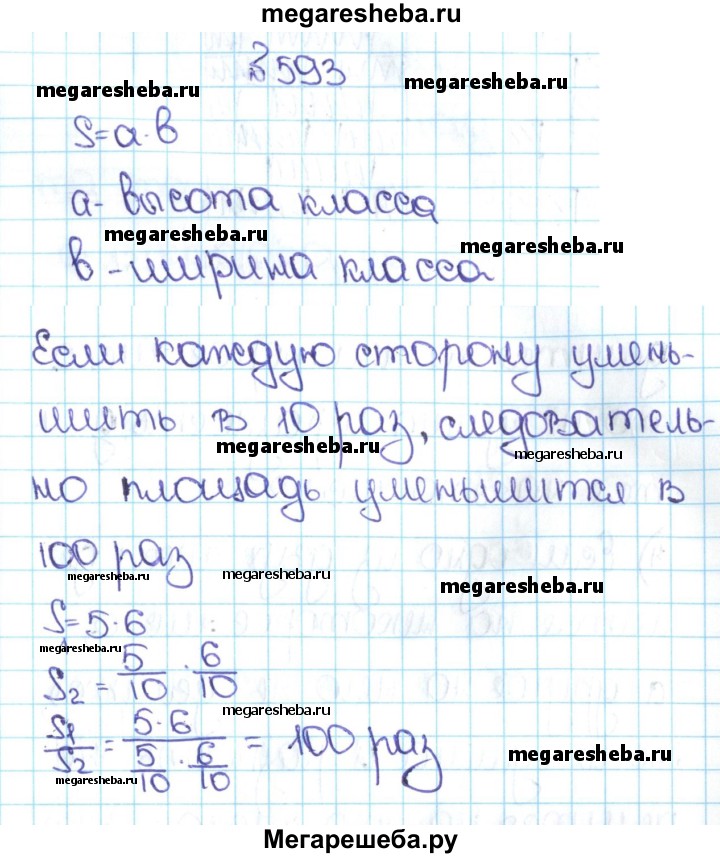 megaresheba.ru
№593
megaresheba.ru
megaresheba.ru
S=a·b
a- высота класса
megaresheba.ru
megaresheba.ru
b -ширина класса
Если каждую сторону умень-
шить в 10 раз, следователь-
megaresheba.ru
megaresheba.ru
но площадь уменьшится в
100 раз
megaresheba.ru
megaresheba.ru
megaresheba.ru
S=5·6
megaresheba.ru
S2 = 5/10 · 6/10
megaresheba.ru
S1/S2 = 5·6 / (5/10 · 6/10) = 100 раз
megaresheba.ru
megaresheba.ru
Мегарешеба.ру